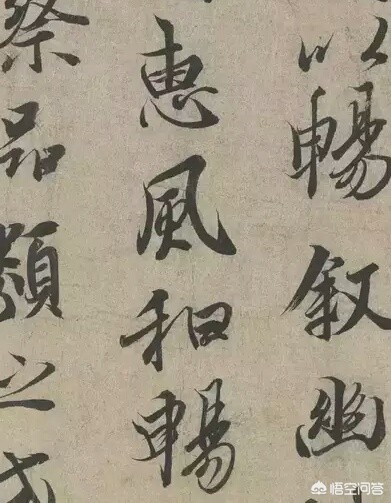 以暢叙幽
惠風和暢
察品類之盛
悟空问答